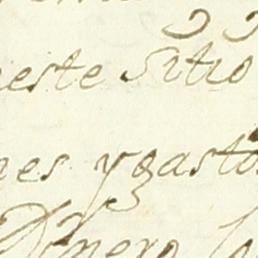 este Sitio
nes y gastos
Dinero